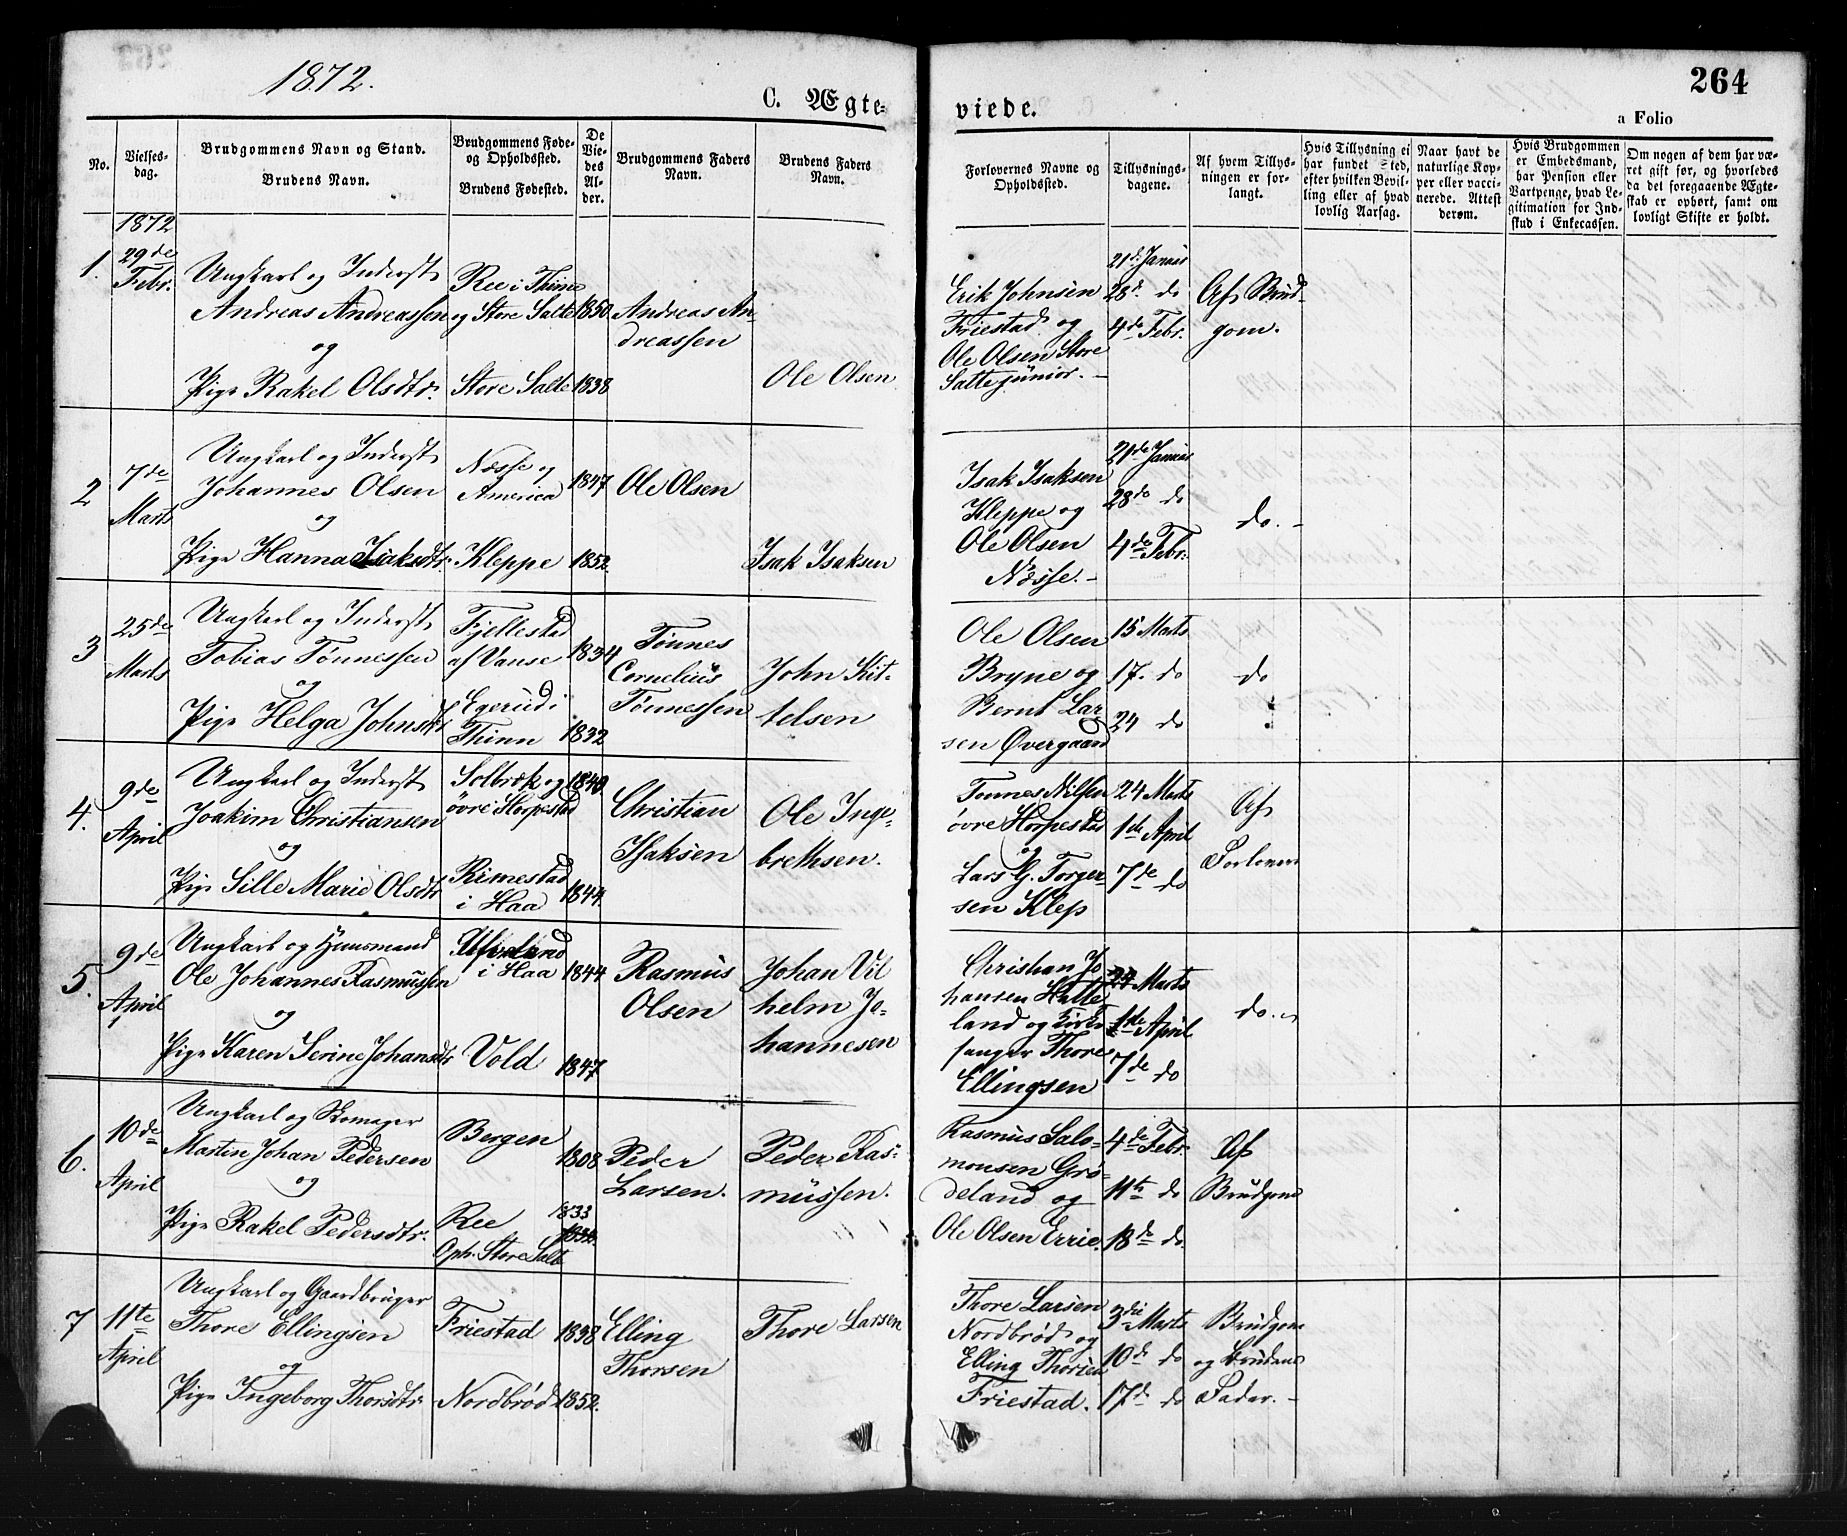 1872.
264
C. Ægte=
viede.
a Folio
No.
Vielses-
dag.
Brudgommens Navn og Stand.
Brudens Navn.
Brudgommens Føde-
og Opholdssted.
Brudens Fødested.
De
Vie-
des
Al-
der.
Brudgommens Faders
Navn.
Brudens Faders
Navn.
Forlovernes Navne og
Opholdssted.
Tillysnings-
dagene.
Af hvem Tillys-
ningen er for-
langt.
Hvis Tillysning ei
har fundet Sted,
efter hvilken Bevil-
ling eller af hvad
lovlig Aarsag.
Naar havt de
naturlige Kop-
per eller vacci-
nerede. Attest
derom.
Hvis Brudgommen
er Embedsmand,
har Pension eller
Vartpenge, hvad Le-
gitimation for Ind-
skud i Enkecassen.
Om nogen af dem har væ-
ret gift før, og hvorledes
da det foregaaende Ægte-
skab er ophørt, samt om
lovligt Skifte er holdt.
1872
1.
29de
Febr.
Ungkarl og Inderst
Andreas Andreassen
og
Pige Rakel Olsdtr.
Ree i Thime
og Store Salte
Store Salte
1850
1838
Andreas An-
dreassen
Ole Olsen
Erik Johnsen
Friestad og
Ole Olsen Store
Salte junior. -
21de Januar
28de do
4de Febr.
Af Brud-
gom.
2
7de
Marts
Ungkarl og Inderst
Johannes Olsen
og
Pige Hanna Isaksdtr.
Næsse og
America
Kleppe
1847
1852
Ole Olsen
Isak Isaksen
Isak Isaksen
Kleppe og
Ole Olsen
Næsse. -
21de Januar
28de do
4de Febr.
do. -
3
25de
Marts
Ungkarl og Inderst
Tobias Tønnessen
og
Pige Helga Johnsdtr
Fjellestad
af Vanse
Egerud i
Thinn
1834
1832
Tønnes
Cornelius
Tønnessen
John Kit-
telsen
Ole Olsen
Bryne og
Bernt Lar
sen Øvergaard
15 Marts
17. do
24 do
do
4.
9de
April
Ungkarl og Inderst
Joakim Christiansen
og
Pige Sille Marie Olsdtr
Solbræk og
övre Horpestad
Rimestad
i Haa
1849
1844
Christian
Isaksen
Ole Inge-
brethsen.
Tønnes Nilsen
övre Horpestad
og
Lars G. Torger-
sen Klep
24 Marts
1de April
7de do
Af
Forlovere
5.
9de
April
Ungkarl og Huusmand
Ole Johannes Rasmussen
og
Pige Karen Serine Johansdtr
i Haa
Vold
1844
1847
Rasmus
Olsen
Johan Vil
helm Jo-
hannesen
Christian Jo
hansen Hatte
land og Kirke
sanger Thore
Ellingsen
24 Marts
1de April
7de do
do. -
6.
10de
April
Ungkarl og Skomager
Martin Johan Pedersen
og
Pige Rakel Pedersdtr.
Bergen
Ree
Oph. Store Salte
1808
1833
Peder
Larsen.
Peder Ras-
mussen.
Rasmus Salo-
monsen Grø-
deland og
Ole Olsen Errie.
4de Febr.
11te do
18de do.
Af
Brudgom
7
11te
April
Ungkarl og Gaardbruger
Thore Ellingsen
og
Pige Ingeborg Thorsdtr.
Friestad
Nordbrød
1838
1852.
Elling
Thorsen
Thore Larsen
Thore Larsen
Nordbrød og
Elling Thorsen
Friestad.
3die Marts
10de do
17de do
Brudgom
og Brudens
Fader. -